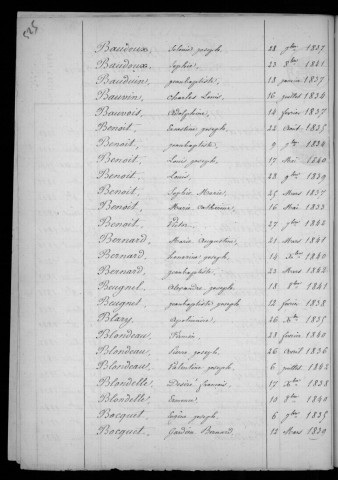 Baudoux, Séline joseph 28 9bre 1837
Baudoux, Sophie, 23 9bre 1841
Bauduin, jeanbaptiste 18 janvier 1837
Bauvin, Charles Louis, 16 juillet 1834
Bauvois, Adolphine, 14 fevrier 1837
Benoit, Ernestine joseph, 22 Août 1835
Benoit, jeanbaptiste 9 1834
Benoit, Louis joseph, 17 Mai 1840
Benoit, Louis, 28 9bre 1839
Benoit, Sophie Marie, 25 Mars 1837
Benoit, Marie Catherine, 16 Mai 1833
Benoit, Victor, 27 7bre 1842
Bernard, Marie Augustine, 21 Mars 1841
Bernard, joseph, 14 Xbre 1840
Bernard, jeanbaptiste, 23 Mars 1842
Beugnet, Alexandre joseph, 18 8bre 1841
Beugnet, jeanbaptiste joseph 12 fevrier 1838
Blary, Apolinaire, 26 Xbre 1835
Blondeau, Firmin, 28 fevrier 1840
Blondeau, Pierre joseph, 26 Avril 1836
Blondeau, Valentine joseph, 6 juillet 1842
Blondelle, Désiré françois, 17 Xbre 1838
Blondelle, 10 8bre 1840
Bocquet, Eugène joseph, 6 7bre 1835
Bocquet, Bernard, 12 Mars 1839